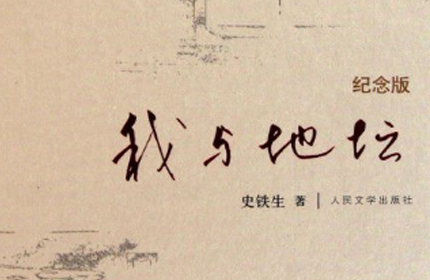 纪念版
我与地坛
史铁生 著 | 人民文学出版社